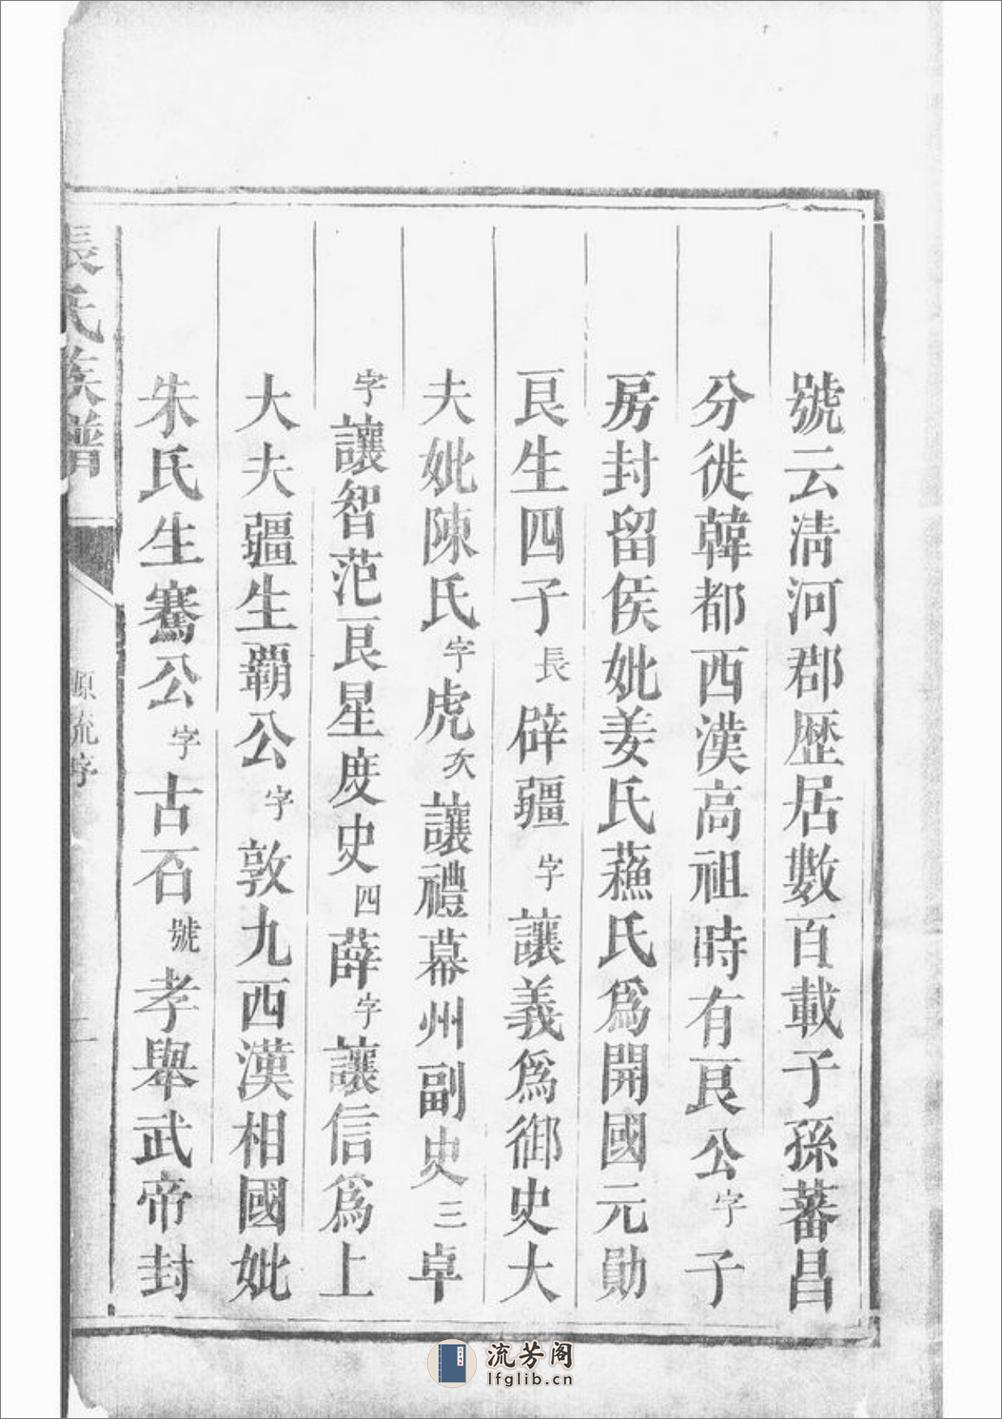 號云淸河郡歷居數百載子孫蕃昌
分徙韓都西漢高祖時有良公字子
房封留侯妣姜氏蘓氏爲開國元勛
良生四子長辟疆字讓義爲御史大
夫妣陳氏字虎次讓禮幕州副史三卓
字讓智范良星度史四薛字讓信爲上
大夫疆生覇公字敦九西漢相國妣
朱氏生騫公字古石號孝舉武帝封
張氏族譜
源流序
二
流芳阁
lfglib.cn